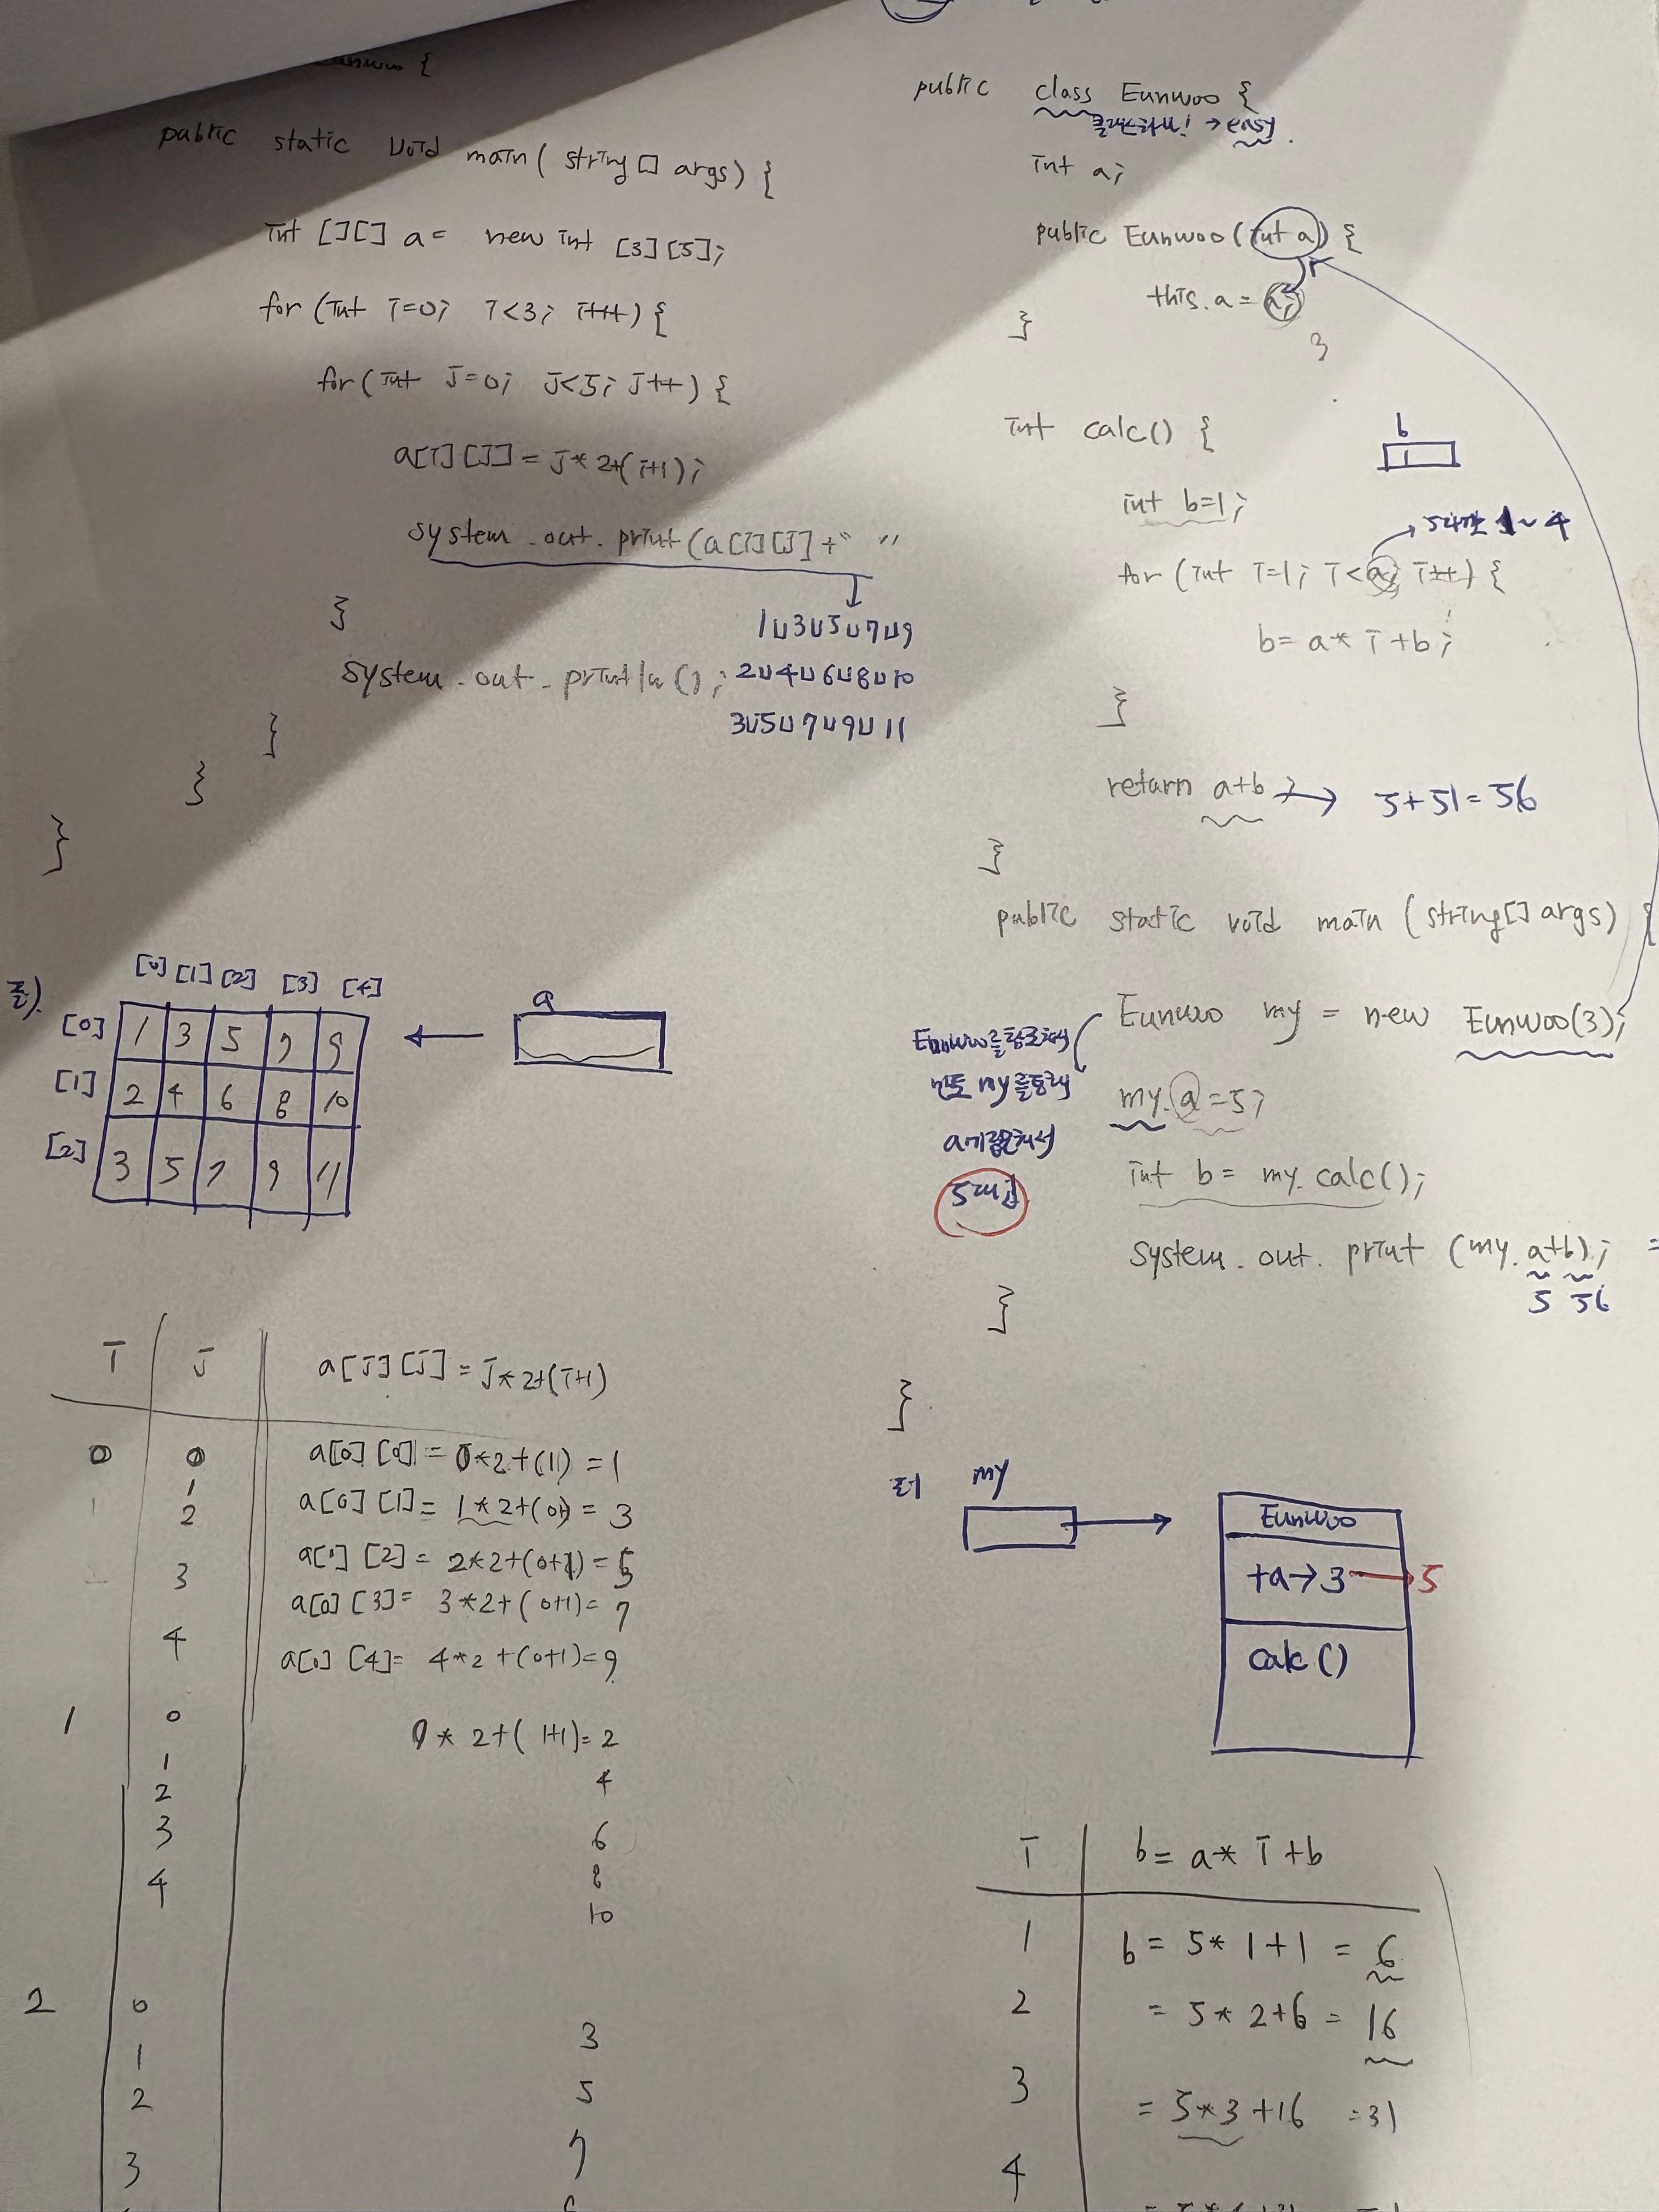 {
public static void main( string[] args) {
int [][] a= new int [3][5];
for (int i=0; i<3; i++) {
for (int j=0; j<5; j++) {
a[i][j] = j*2+(i+1);
system.out.print(a[i][j]+" "
}
1⊔3⊔5⊔7⊔9
system.out.println(); 2⊔4⊔6⊔8⊔10
3⊔5⊔7⊔9⊔11
}
}
}
[0] [1] [2] [3] [4]
a
[0] 1 3 5 7 9
[1] 2 4 6 8 10
[2] 3 5 7 9 11
i j a[j][j] = j*2+(i+1)
0 0 a[0][0] = 0*2+(1) = 1
1
2 a[0][1] = 1*2+(0+1) = 3
a[0][2] = 2*2+(0+1) = 5
3 a[0][3] = 3*2+(0+1) = 7
4 a[0][4] = 4*2+(0+1) = 9
1 0 0*2+(1+1)=2
1 4
2
3 6
4 8
10
2 0 3
1 5
2 7
3
public class Eunwoo {
→easy.
int a;
public Eunwoo(int a) {
this.a = a;
}
3
int calc() {
b
1
int b=1;
1~4
for (int i=1; i<a; i++) {
b= a* i+b;
}
return a+b; → 5+51=56
}
public static void main (string[] args) {
Eunwoo my = new Eunwoo(3);
my.a=5;
int b = my.calc();
system.out.print (my.a+b); =
5 56
}
}
my
Eunwoo
+a→3 → 5
calc()
i b= a* i+b
1 b = 5* 1+1 = 6
2 = 5* 2+6 = 16
3 = 5*3+16 =31
4